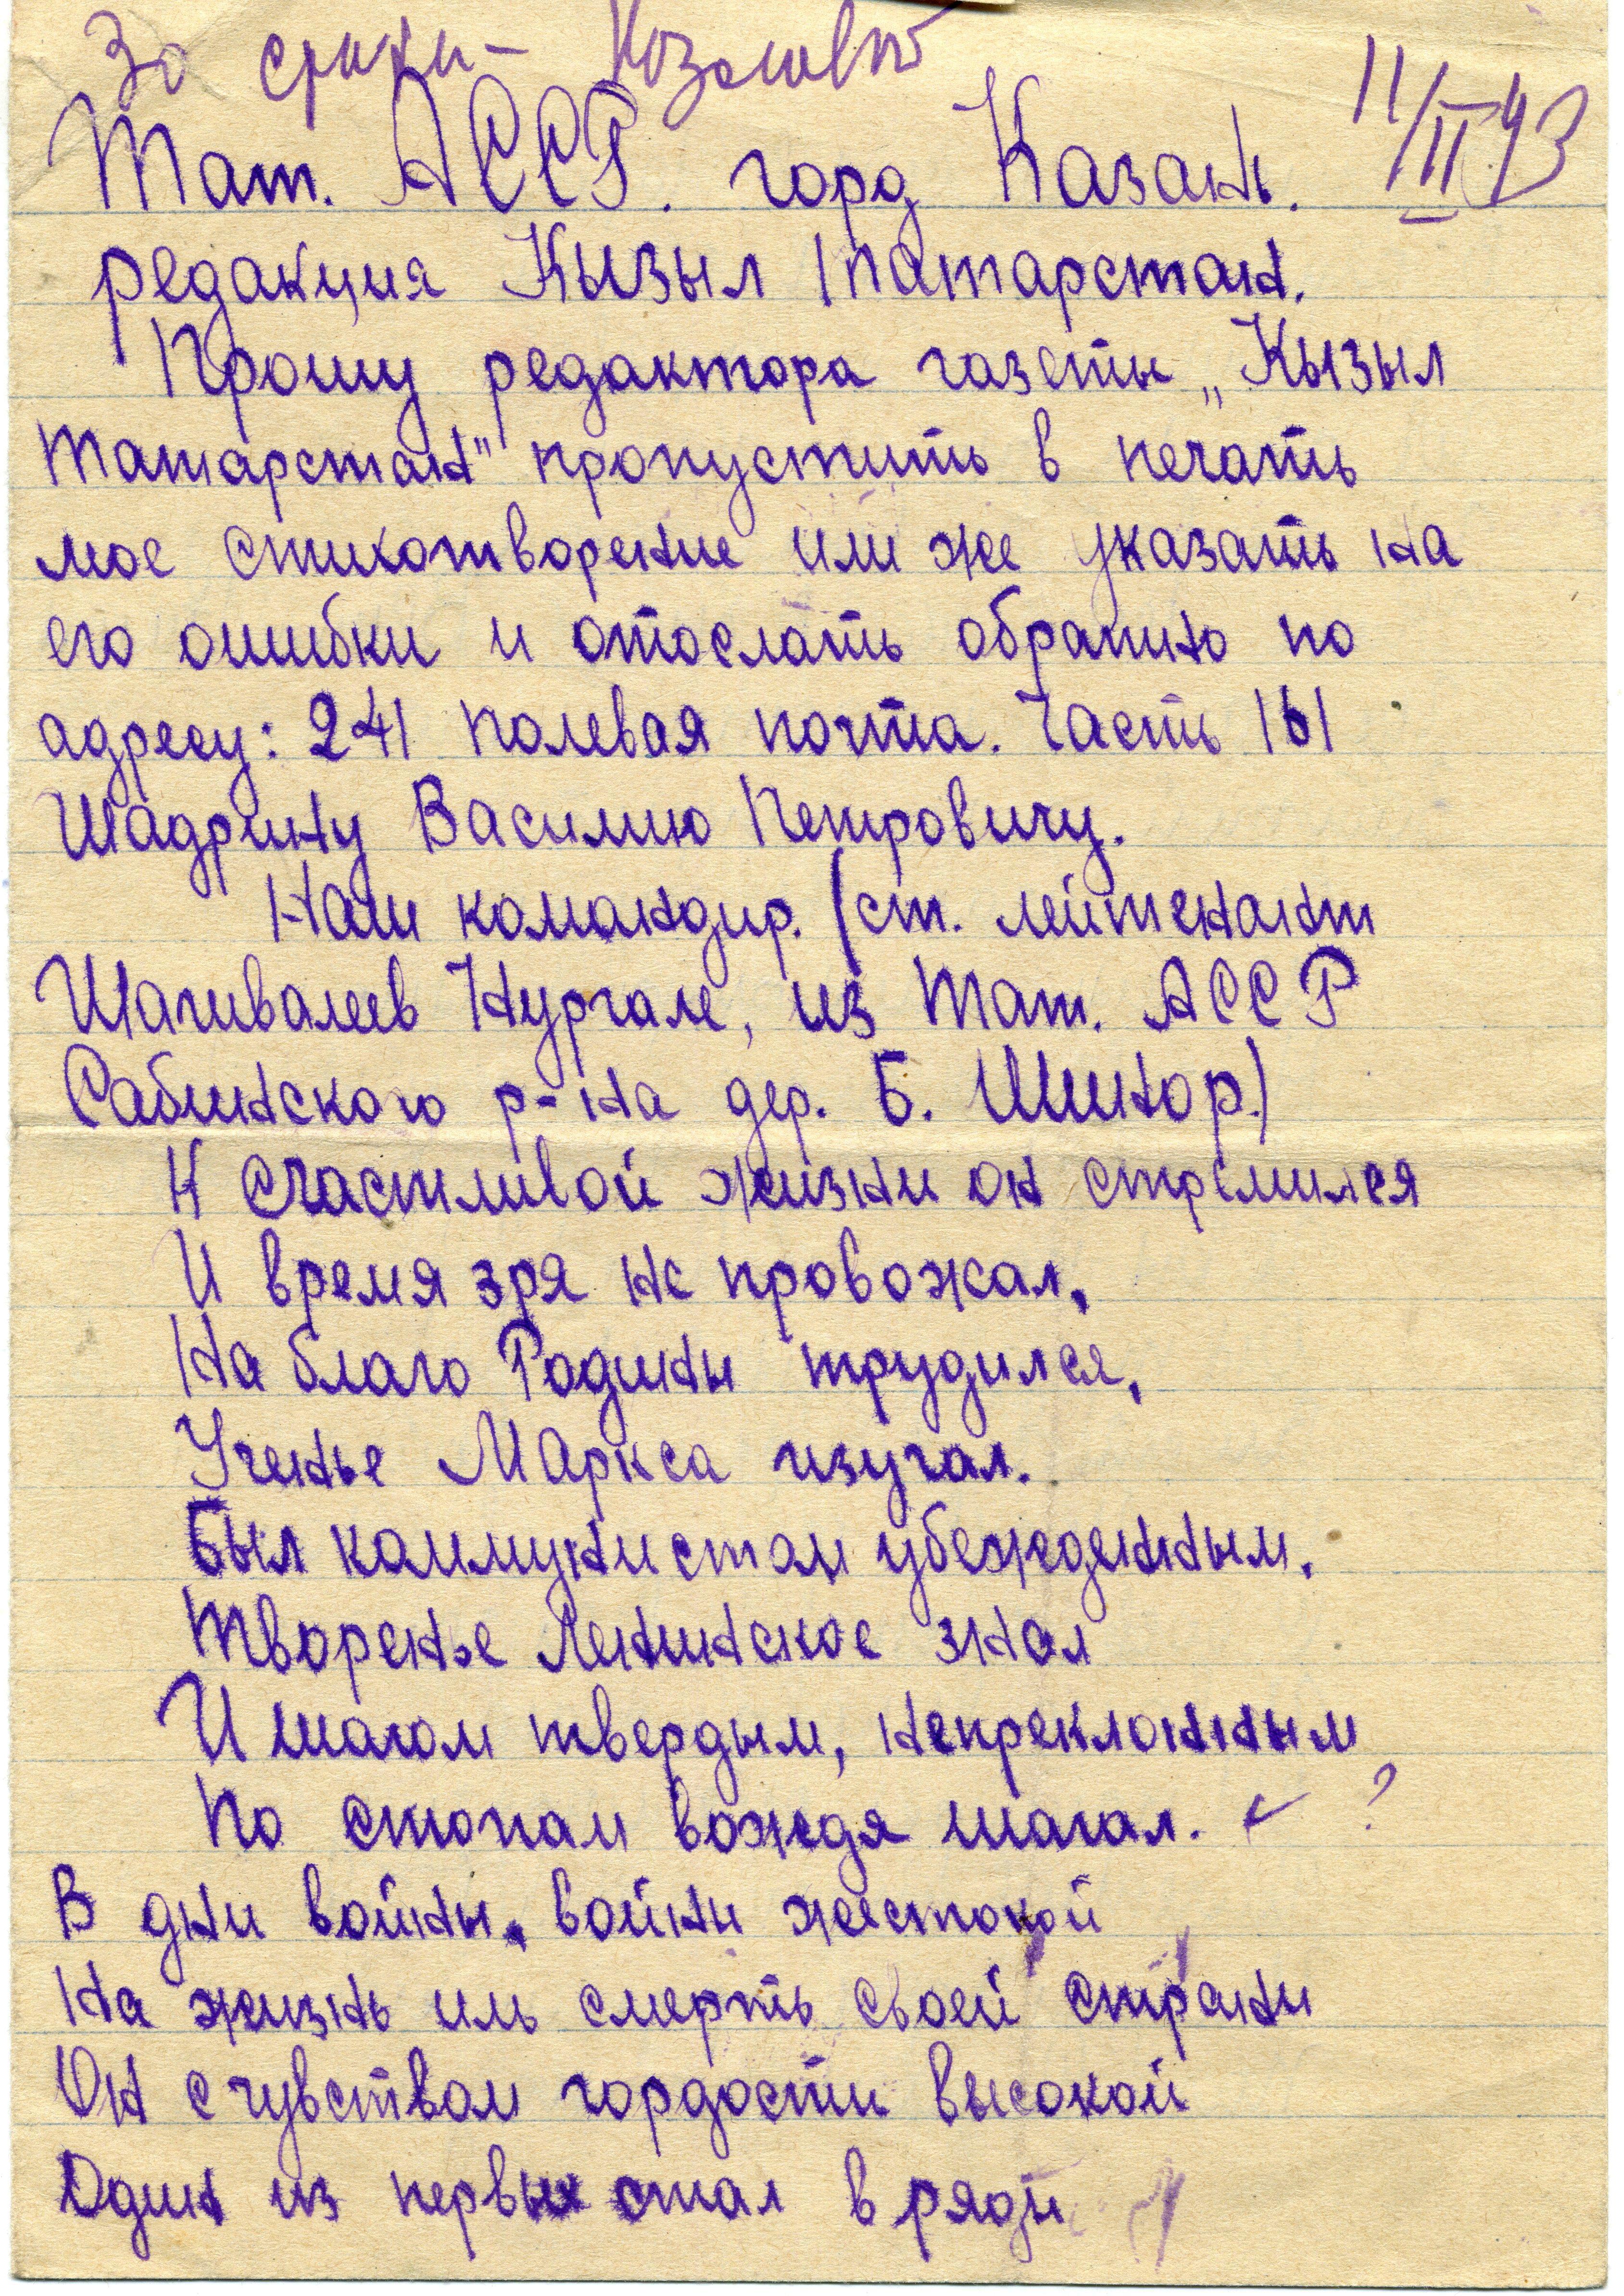 11/II 43
Тат. АССР. горд Казань.
редакция Кызыл Татарстан.
Прошу редактора газеты „Кызыл
Татарстан" пропустить в печать
мое стихотворение или же указать на
его ошибки и отослать обратно по
адресу: 241 полевая почта. Часть 161
Шадрину Василию Петровичу.
Наш командир. (ст. лейтенант
Шагивалеев Нургале, из Тат. АССР
Сабинского р-на дер. Б. Шинор.)
К счастливой жизни он стремился
И время зря не провожал,
На благо Родины трудился,
Ученье Маркса изучал.
Был коммунистом убежденным,
Творенье Ленинское знал
И шагом твердым, непреклонным
По стопам вождя шагал. ?
В дни войны, войны жестокой
На жизнь иль смерть своей страны
Он с чувством гордости высокой
Один из первых стал в ряды